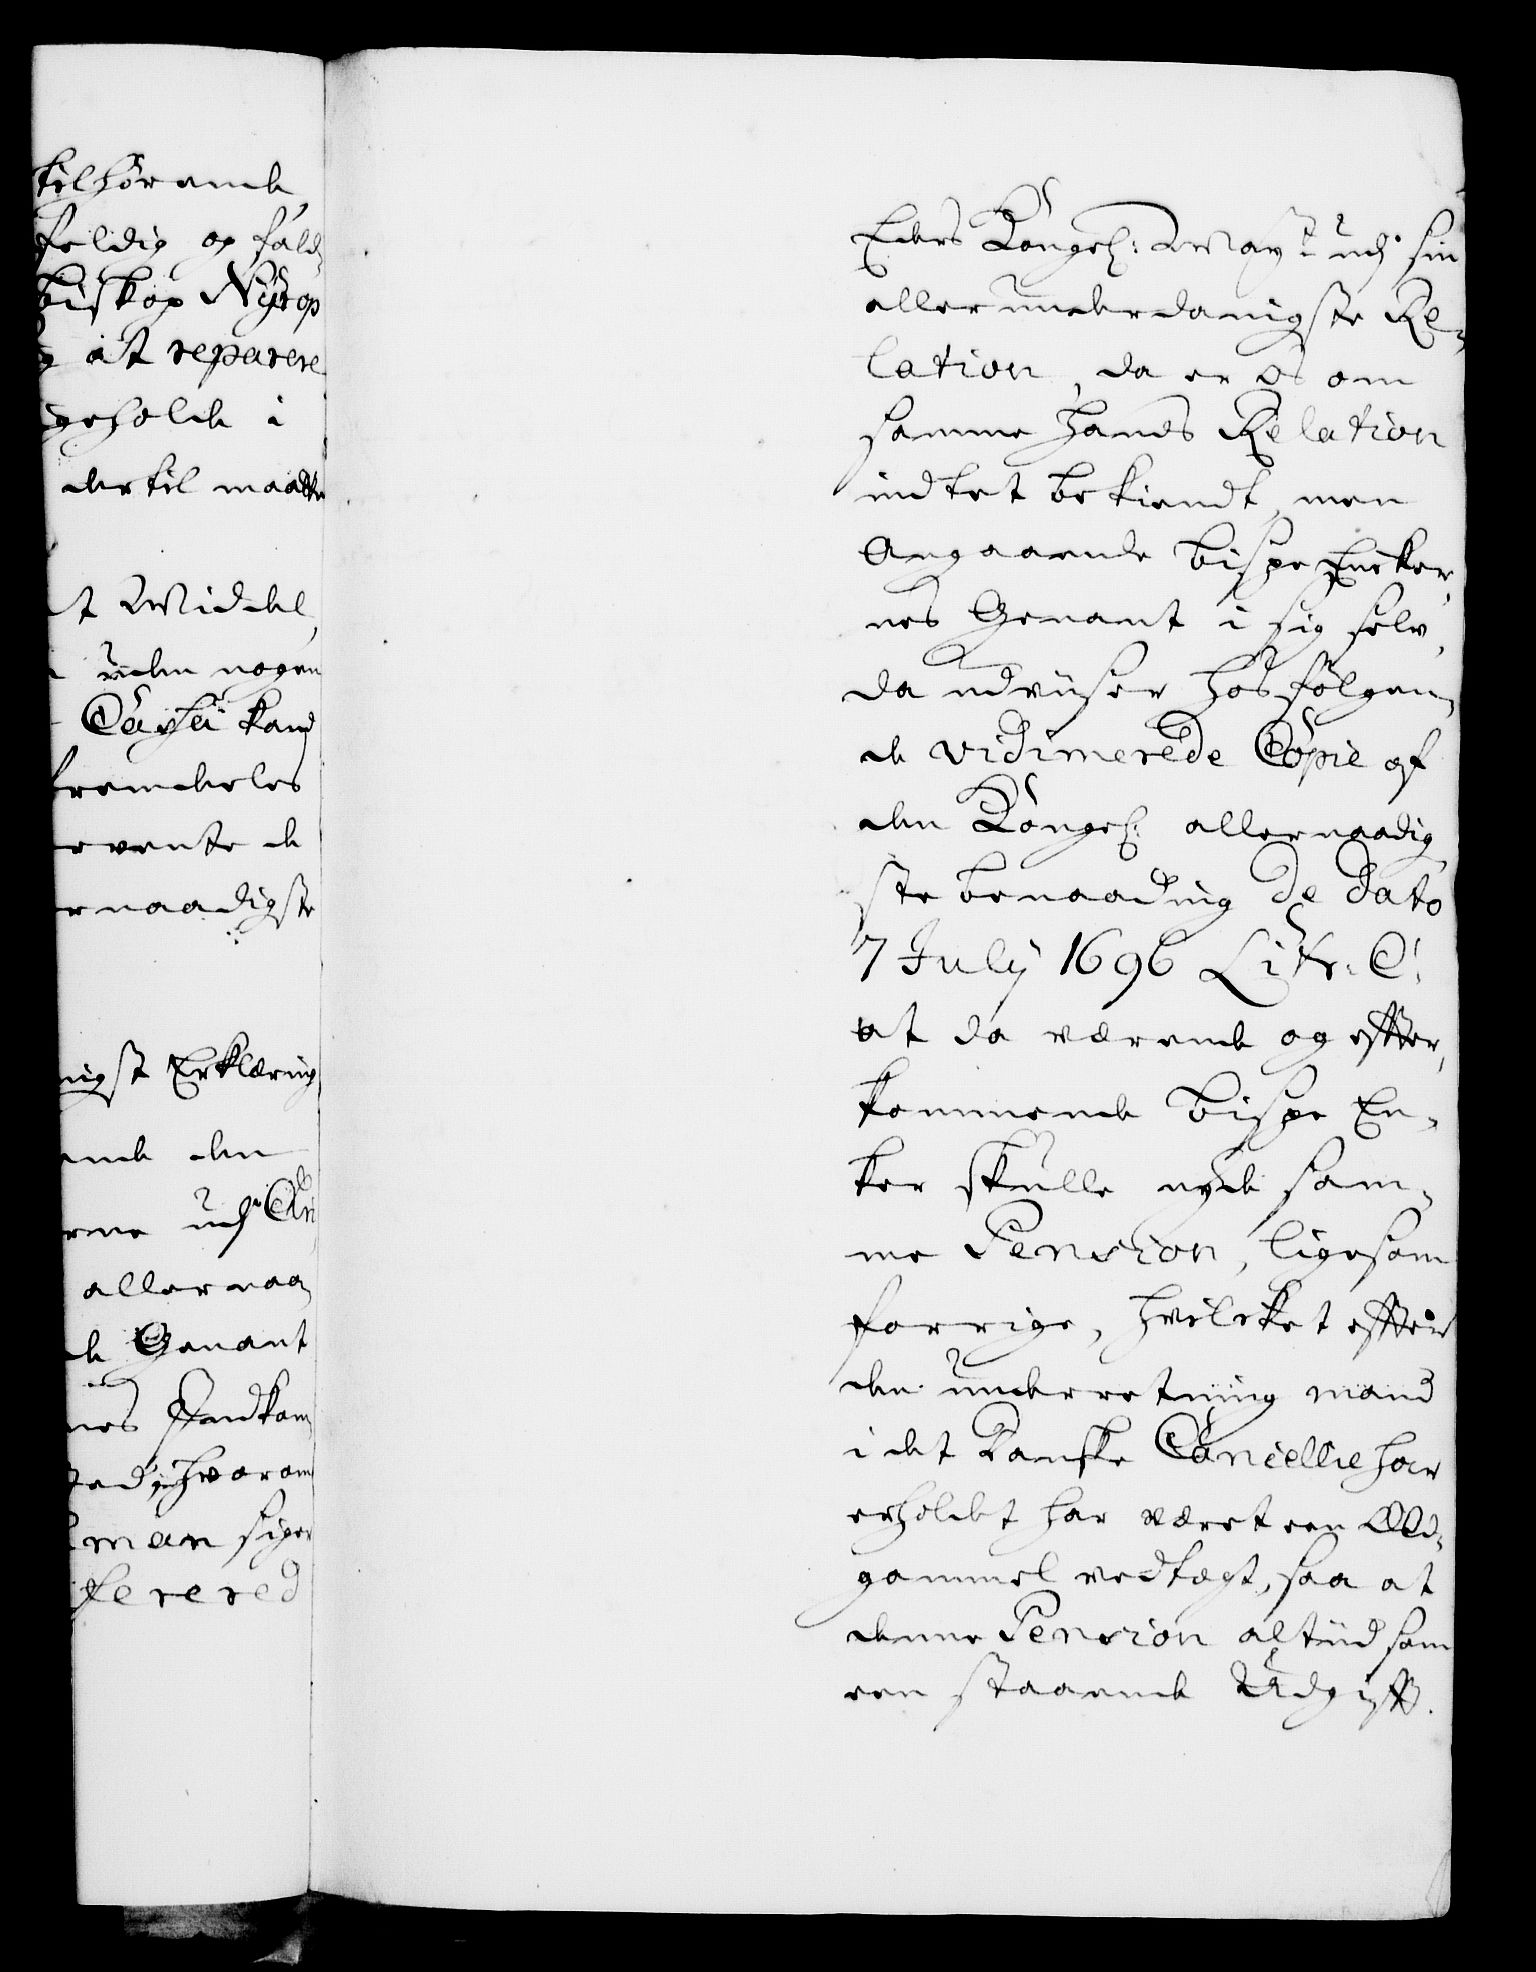 tilhørende
feldig og fald-
biskop Nyrop
at reparere
geholde i
dertil maatte
t Middel
uden nogen
Cassa kand
fremdeles
vente de
rnaadigste
nigst Erklæring
ende den
rne udj
allernaa
de Genant
nes Indkom
hvorom
man siger
ferered
Eders Kongel: Mayt udj sin
allerunderdanigste Re-
lation, da er os om
samme hands Relation
indtet bekiendt, men
Angaaende bispe Encker-
nes Genant i sig selv,
da udviiser hosfølgen-
de vidimerede Copie af
den Kongel: allernaadig
ste benaading de dato
7 July 1696 Litr: C!
at da værende og effter-
kommende bispe En-
ker skulle nyde sam-
me Pension, ligesom
forrige, hvilcket effter
den underretning mand
i det Danske Cancellie har
erholdet har været een Æld-
gammel vedtægt, saa at
denne Pension altiid som
een staaende Udgifft.